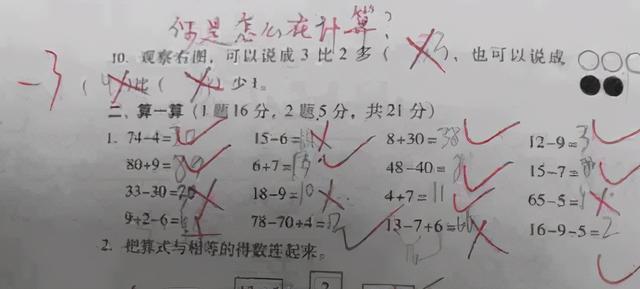 你是怎么在计算?
10. 观察右图，可以说成 3 比 2 多( )，也可以说成
-3
( )比( )少1。
二、算一算(1题16分，2题5分，共21分)
1. 74-4=70 15-6= 8+30=38 12-9=3
80+9=89 6+7=13 48-40=8 15-7=8
33-30= 18-9=10 4+7=11 65-5=
9+2-6= 78-70+4=12 13-7+6= 16-9-5=2
2. 把算式与相等的得数连起来。